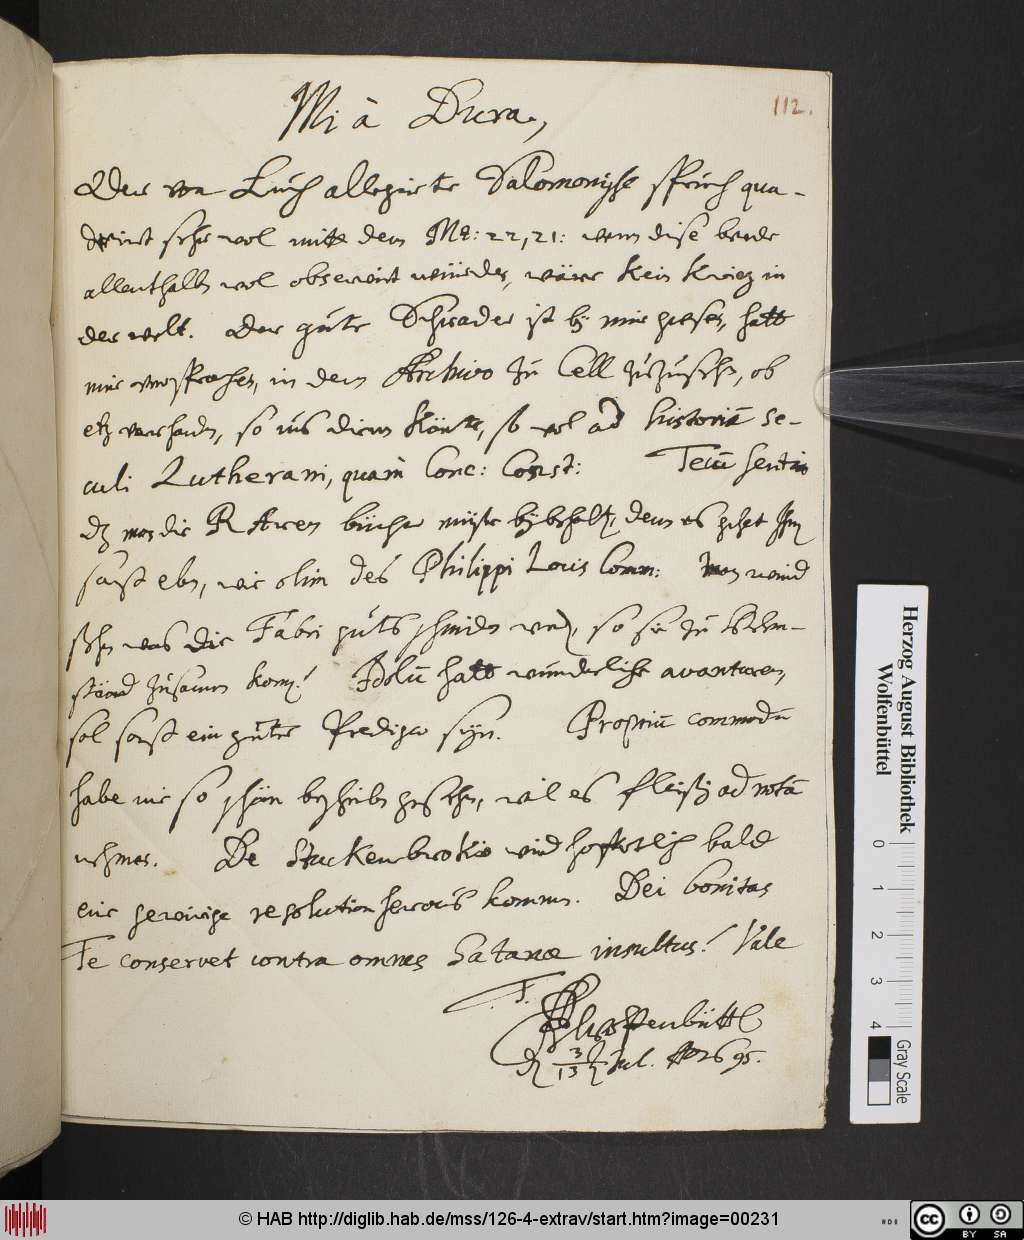 112.
Mi à Dura,
Der von Euch allegirte Salomonische spruch qua-
drirt sehr wol mitt dem Mt: 22, 21: wenn diese beede
allenthalb wol observirt würden, wäre kein Krieg in
der welt. Der gute Schrader ist bey mir gewesen, hatt
mir versprochen, in dem Archivo zu Cell zuzusehen, ob
etz vorhanden, so uns dienen könte, so wol ad historiā Se-
culi Lutherani, quam Conc: Const: Tecū sentio
dz man die Raren bücher müste beybehalten, denn es gehet
sonst eben, wie olim des Philippi Lonis Comm: Man wird
sehen was die Fabri guts schmieden werden, so sie zu
zusamen komen! Idolū hatt wunderliche avanturen,
sol sonst ein guter Prediger seyn. Propriū commodū
habe nie so schön beschrieben gesehen, wil es fleissig ad notā
nehmen. De Stuckenbrokio wird hoffentlich bald
eine gewisse resolution heraus kommen. Dei bonitas
Te conservet contra omnes Satanæ insultus! Vale
T.
Wolffenbüttl
d 3/13 Jul. 1695.
Herzog August Bibliothek
Wolfenbüttel
0 1 2 3 4
Gray Scale
© HAB http://diglib.hab.de/mss/126-4-extrav/start.htm?image=00231
cc BY SA